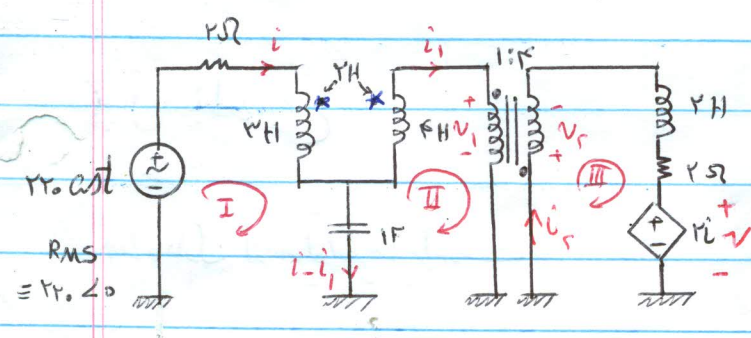 ۲Ω
i
۲H
i₁
۱:۳
۳H
۴H
+
v₁
-
-
v₂
+
۲H
۲Ω
+
-
۲۲۰ cost
I
II
III
۱F
i-i₁
i₂
+
-
۲i
+
v
-
RMS
≡ ۲۲۰ <۰